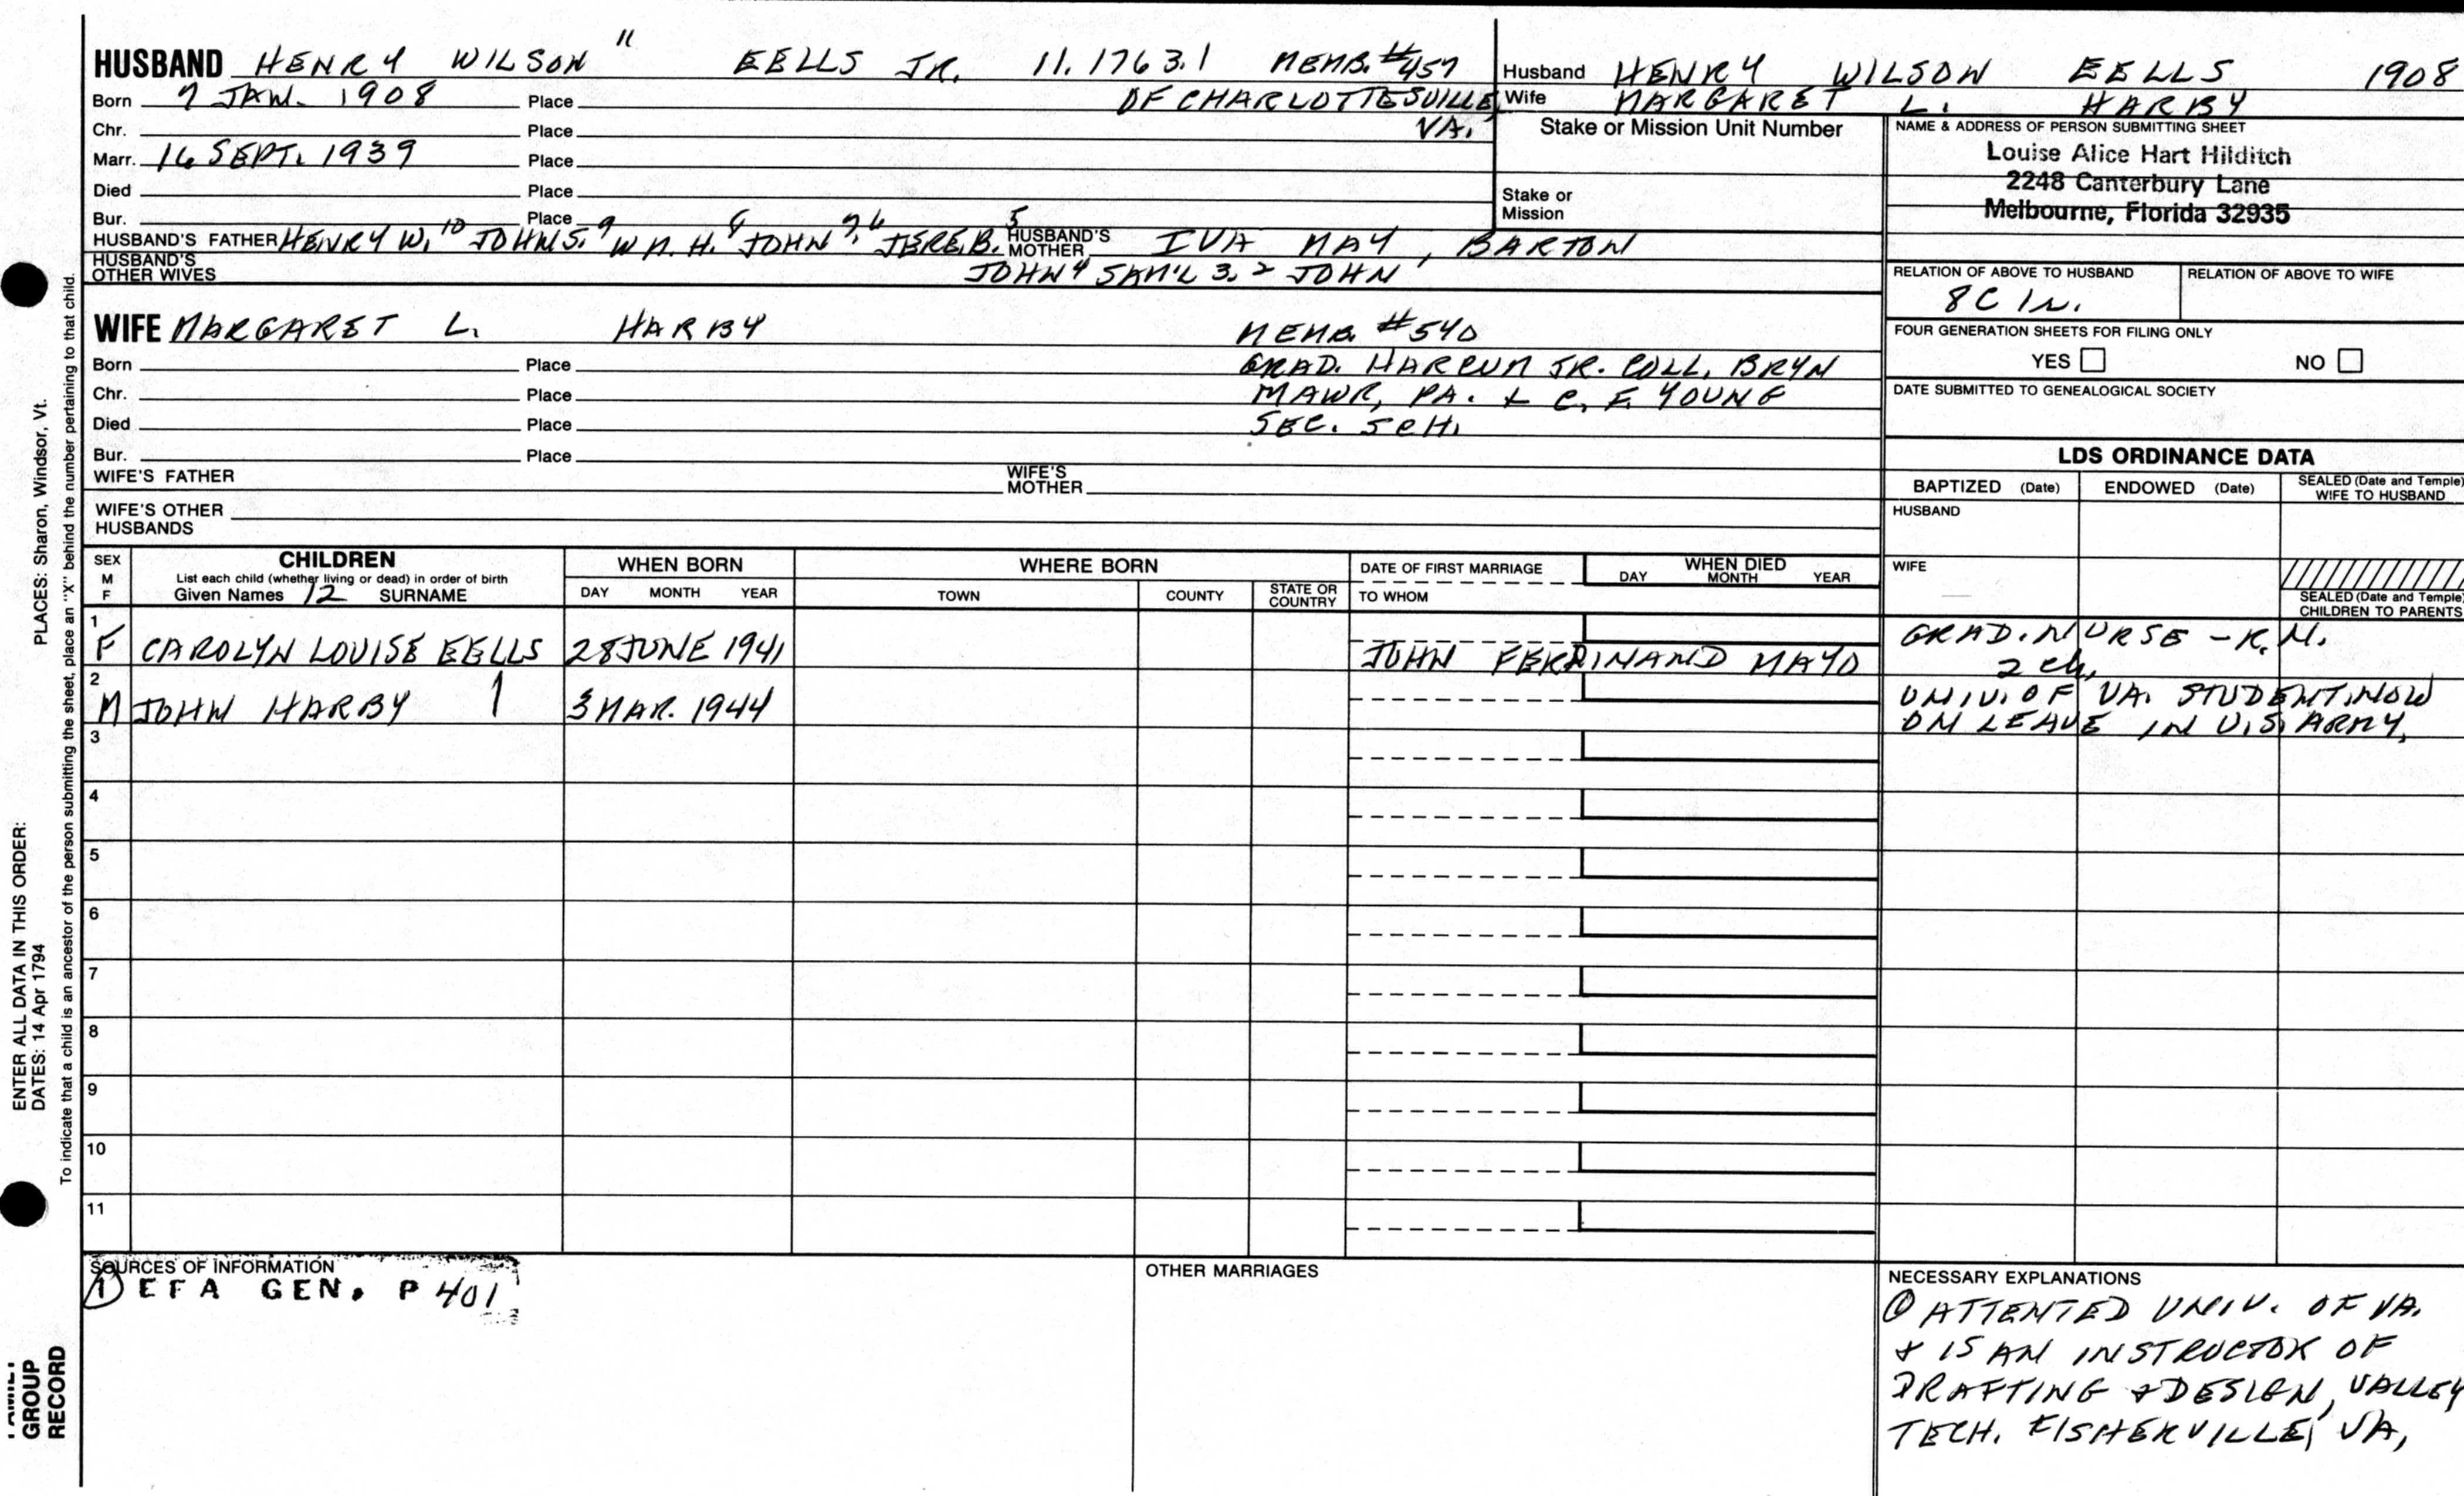 HUSBAND HENRY WILSON 11 EELLS JR. 11.1763.1 MEMB. #457
Born 7 JAN. 1908 Place OF CHARLOTTESVILLE,
Chr. Place VA.
Marr. 16 SEPT. 1939 Place
Died Place
Bur. Place
HUSBAND'S FATHER HENRY W. 10 JOHN S. 9 WM. H. 8 JOHN 7, 6 JERE. B. 5 HUSBAND'S MOTHER IVA MAY, BARTON
HUSBAND'S OTHER WIVES JOHN 4 SAM'L 3, 2 JOHN 1
Husband HENRY WILSON EELLS 1908
Wife MARGARET L. HARBY
Stake or Mission Unit Number
Stake or
Mission
NAME & ADDRESS OF PERSON SUBMITTING SHEET
Louise Alice Hart Hilditch
2248 Canterbury Lane
Melbourne, Florida 32935
RELATION OF ABOVE TO HUSBAND RELATION OF ABOVE TO WIFE
8C 1r.
FOUR GENERATION SHEETS FOR FILING ONLY
YES NO
DATE SUBMITTED TO GENEALOGICAL SOCIETY
WIFE MARGARET L. HARBY MEMB. #540
Born Place GRAD. HARCUM JR. COLL. BRYN
Chr. Place MAWR, PA. & C. F. YOUNG
Died Place SEC. SCH.
Bur. Place
WIFE'S FATHER WIFE'S MOTHER
WIFE'S OTHER
HUSBANDS
LDS ORDINANCE DATA
BAPTIZED (Date) ENDOWED (Date) SEALED (Date and Temple) WIFE TO HUSBAND
HUSBAND
WIFE
SEALED (Date and Temple)
CHILDREN TO PARENTS
SEX M F
CHILDREN
List each child (whether living or dead) in order of birth
Given Names 12 SURNAME
WHEN BORN
DAY MONTH YEAR
WHERE BORN
TOWN COUNTY STATE OR COUNTRY
DATE OF FIRST MARRIAGE
TO WHOM
WHEN DIED
DAY MONTH YEAR
1
F CAROLYN LOUISE EELLS 28 JUNE 1941 JOHN FERDINAND MAYO GRAD. NURSE - R.N.
2 ch.
2
M JOHN HARBY 1 3 MAR. 1944 UNIV. OF VA. STUDENT, NOW
ON LEAVE IN U.S. ARMY.
3
4
5
6
7
8
9
10
11
SOURCES OF INFORMATION
1 EFA GEN. P 401
OTHER MARRIAGES
NECESSARY EXPLANATIONS
① ATTENTED UNIV. OF VA.
& IS AN INSTRUCTOR OF
DRAFTING & DESIGN, VALLEY
TECH. FISHERVILLE, VA.
ENTER ALL DATA IN THIS ORDER:
DATES: 14 Apr 1794 PLACES: Sharon, Windsor, Vt.
To indicate that a child is an ancestor of the person submitting the sheet, place an "X" behind the number pertaining to that child.
FAMILY
GROUP
RECORD